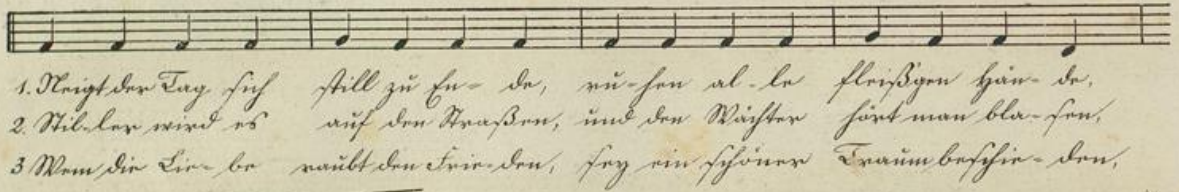 1. Neigt der Tag sich still zu En- de, ru-hen al-le fleißgen Hän- de,
2. Stil-ler wird es auf den Straßen, und den Wächter hört man bla-sen,
3 Wem die Lie- be raubt den Frie-den, sey ein schöner Traum beschie-den,